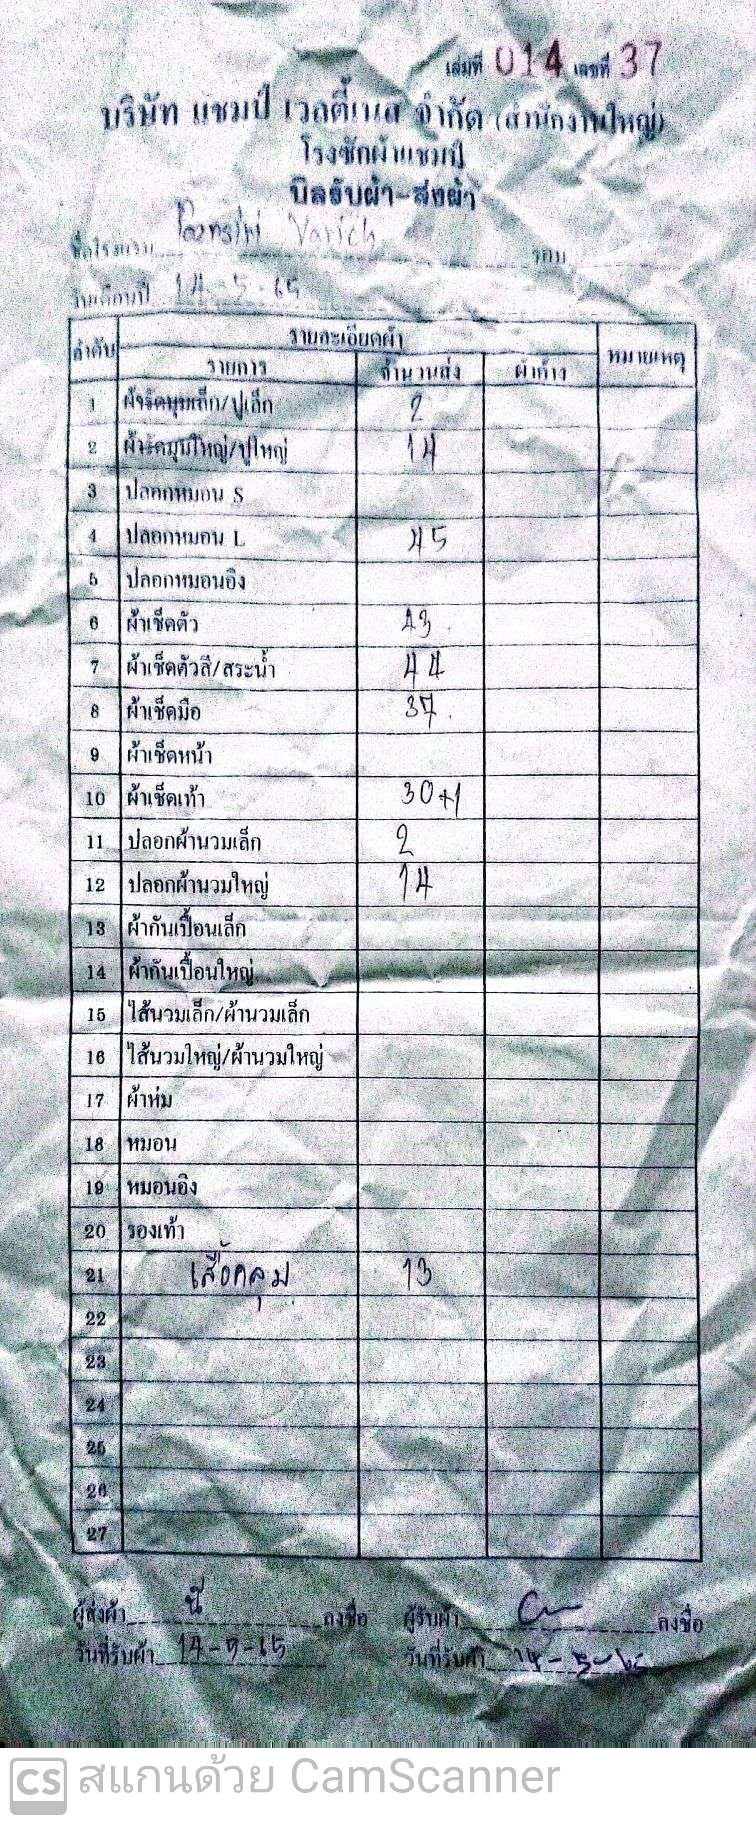 เล่มที่ 014 เลขที่ 37
บริษัท แชมป์ เวลตี้เนส จำกัด (สำนักงานใหญ่)
โรงซักผ้าแชมป์
บิลรับผ้า-ส่งผ้า
ชื่อโรงแรม Varich รอบ
วันเดือนปี 14-5-65
ลำดับ รายละเอียดผ้า หมายเหตุ
รายการ จำนวนส่ง ผ้าค้าง
1 ผ้ารัดมุมเล็ก/ปูเล็ก 2
2 ผ้ารัดมุมใหญ่/ปูใหญ่ 14
3 ปลอกหมอน S
4 ปลอกหมอน L 45
5 ปลอกหมอนอิง
6 ผ้าเช็ดตัว 43
7 ผ้าเช็ดตัวสี/สระน้ำ 44
8 ผ้าเช็ดมือ 37
9 ผ้าเช็ดหน้า
10 ผ้าเช็ดเท้า 30+1
11 ปลอกผ้านวมเล็ก 2
12 ปลอกผ้านวมใหญ่ 14
13 ผ้ากันเปื้อนเล็ก
14 ผ้ากันเปื้อนใหญ่
15 ไส้นวมเล็ก/ผ้านวมเล็ก
16 ไส้นวมใหญ่/ผ้านวมใหญ่
17 ผ้าห่ม
18 หมอน
19 หมอนอิง
20 รองเท้า
21 เสื้อคลุม 13
22
23
24
25
26
27
ผู้ส่งผ้า ลงชื่อ ผู้รับผ้า ลงชื่อ
วันที่รับผ้า 14-5-65 วันที่รับผ้า 14-5-65
CS สแกนด้วย CamScanner